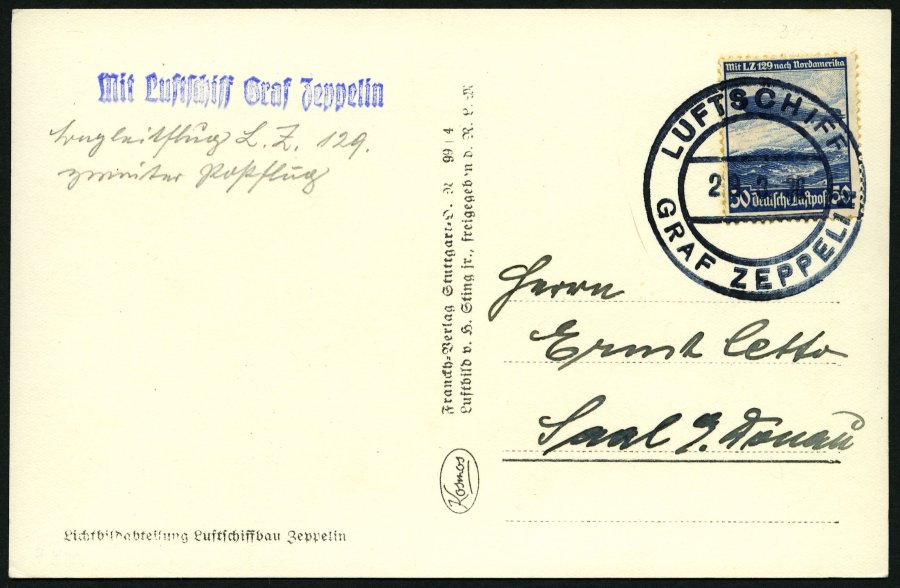 Mit Luftschiff Graf Zeppelin
Begleitflug L. Z. 129.
zweiter Postflug
Mit LZ 129 nach Nordamerika
50 Deutsche Luftpost 50
LUFTSCHIFF
GRAF ZEPPELIN
Franckh-Verlag Stuttgart-O. N 99 4
Luftbild v. H. Sting jr., freigegeben d. R. L. M
Kosmos
Herrn
Ernst Cetto
Saal a. Donau
Lichtbildabteilung Luftschiffbau Zeppelin